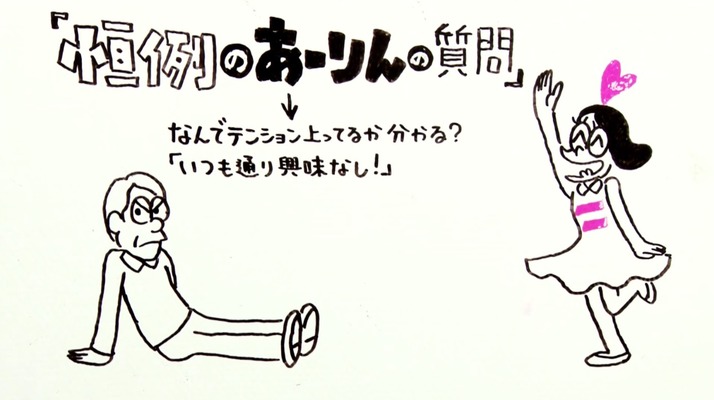 『恒例のあーりんの質問』
なんでテンション上ってるか分かる?
「いつも通り興味なし!」